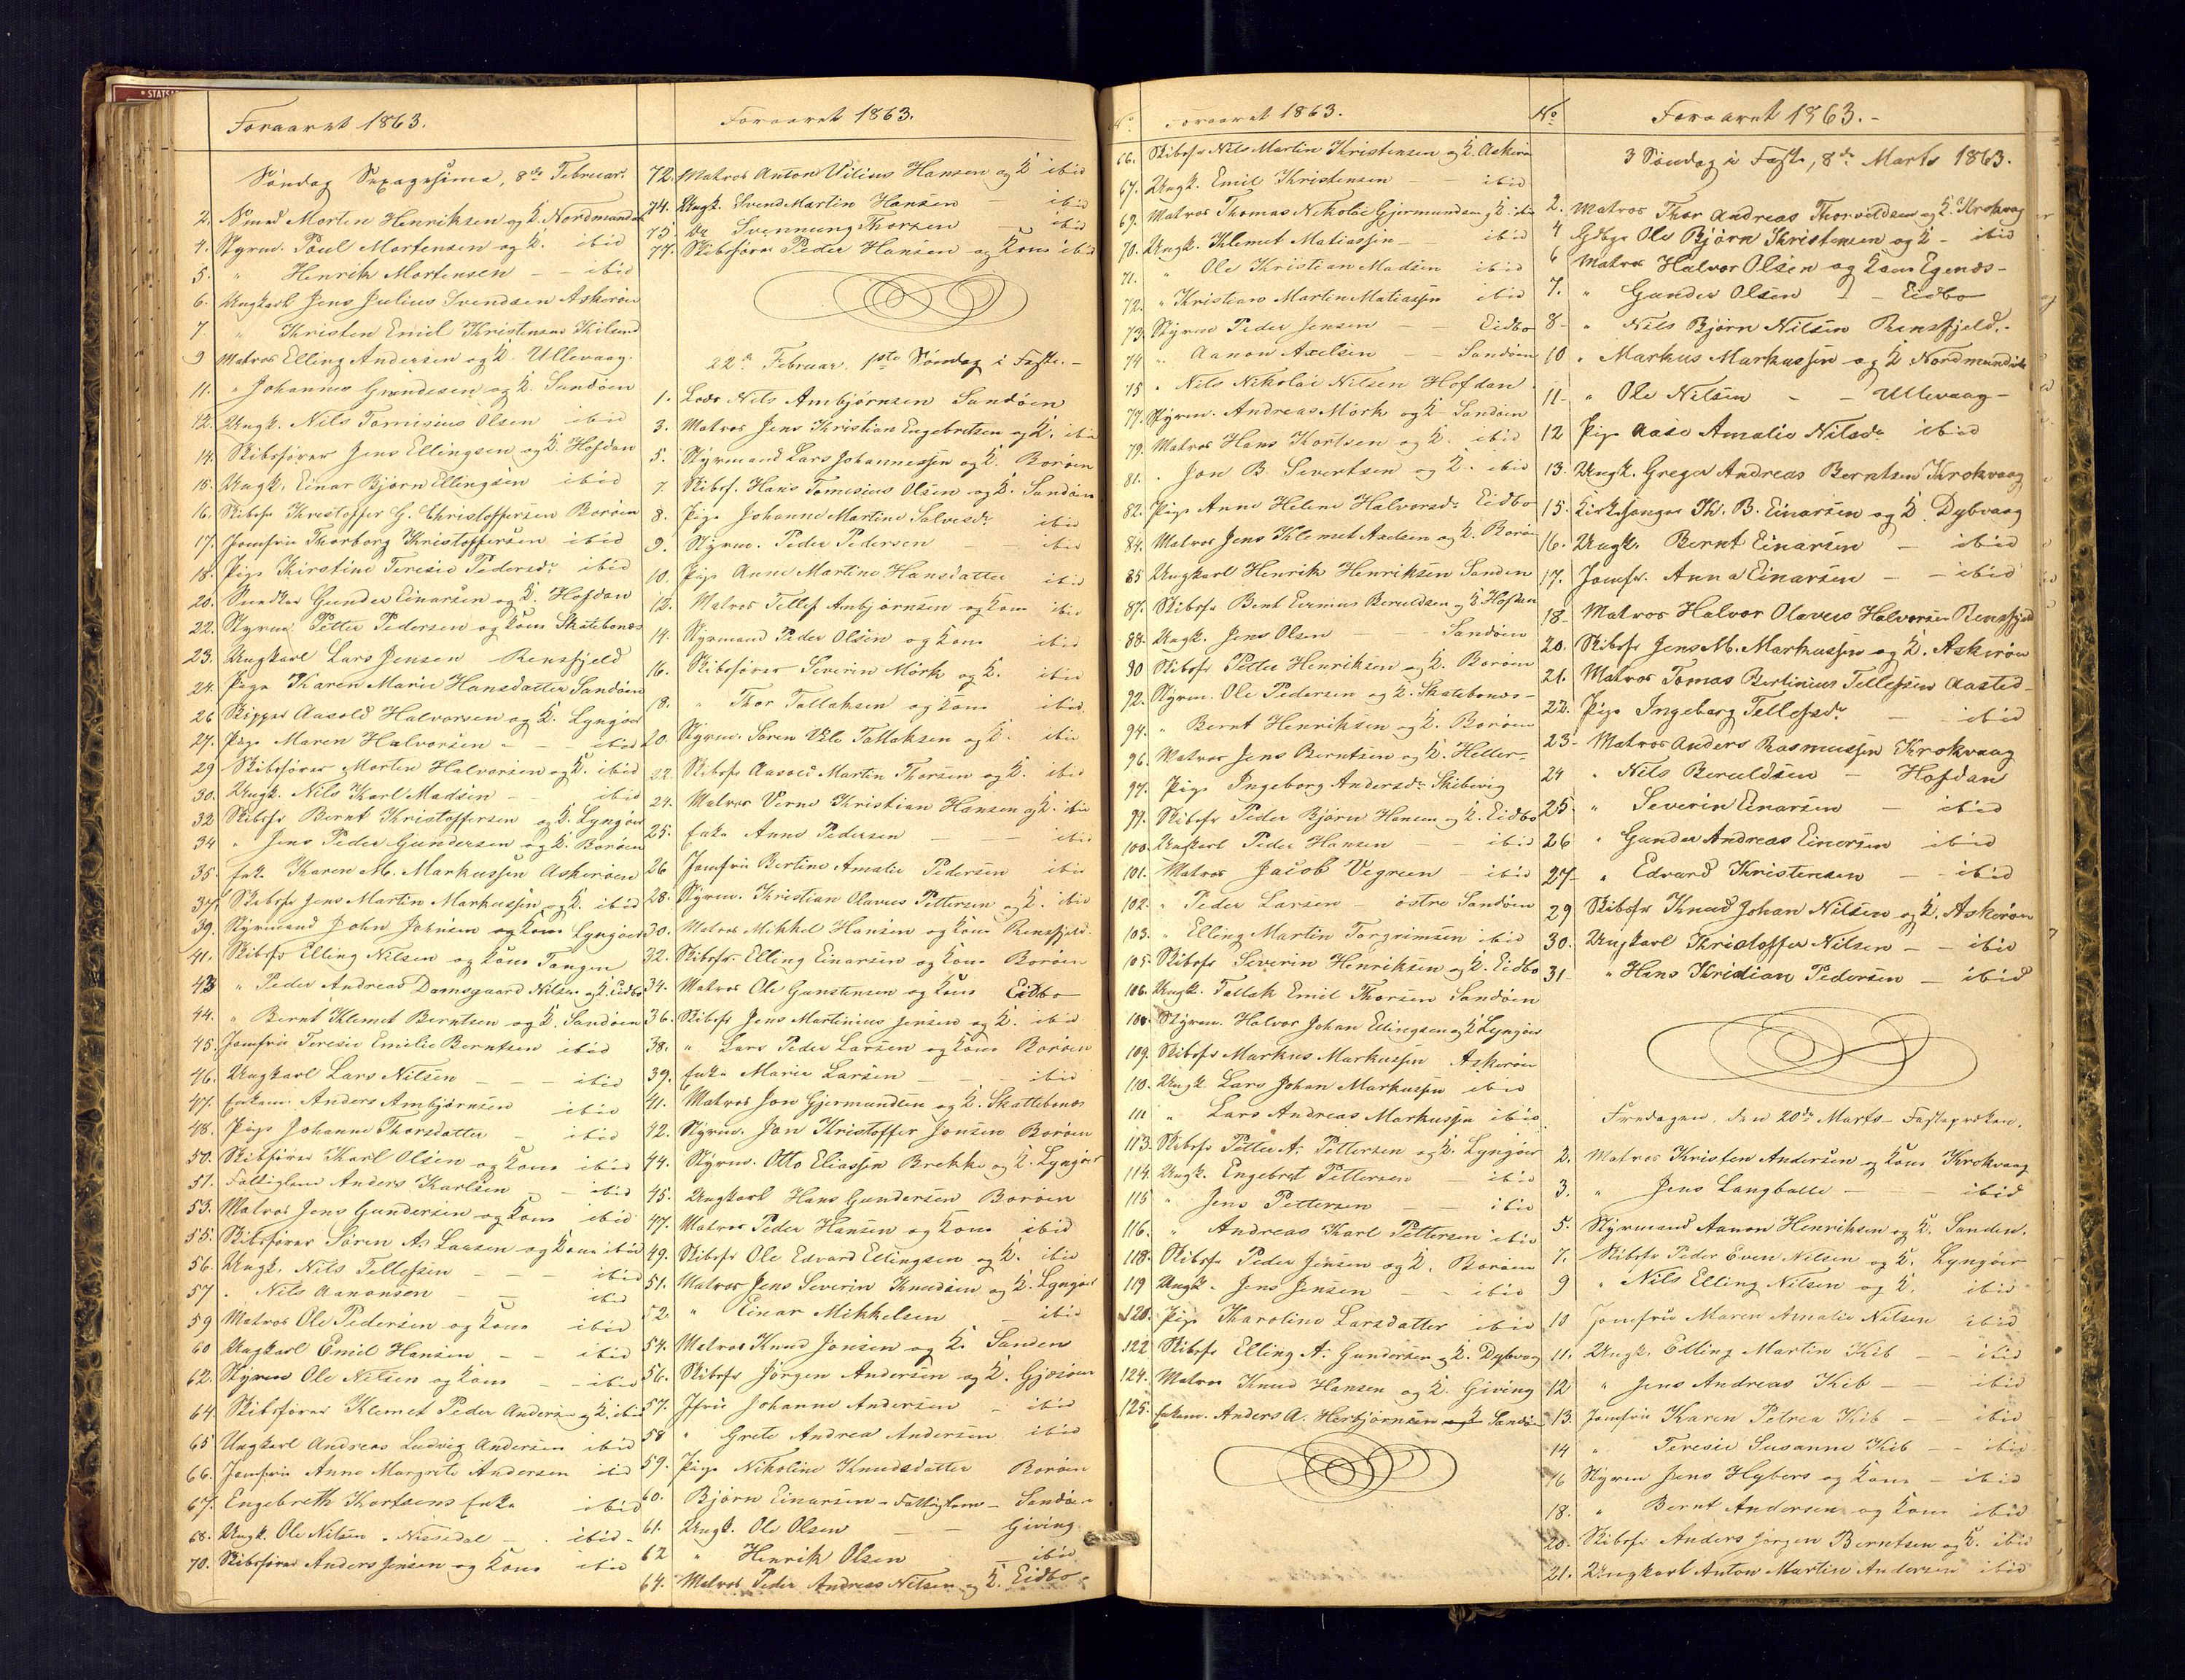 * STATSA
Foraaret 1863.
Søndag Sexagesima, 8de Februar.
2. Smed Morten Henriksen og K. Nordmandsv
4. Styrm. Poul Mortensen og K. ibid
5. " Henrik Mortensen - - ibid
6. Ungkarl Jens Julius Svendsen Askerøen
7 " Kristen Emil Kristensen Kilend
9 Matros Elling Andersen og K. Ullevaag.
11. " Johannes Gundesen og K. Sandøen
12. Ungk. Nils Tomisius Olsen ibid
14. Skibsfører Jens Ellingsen og K. Hofdan
15. Ungk. Einar Bjørn Ellingsen ibid
16. Skibsfr Kristoffer G. Christoffersen Borøen
17. Jomfru Thorborg Kristoffersen ibid
18. Pige Kirstine Teresie Pedersdr ibid
20. Snedker Gunder Einarsen og K. Hofdan
22. Styrm. Petter Pedersen og Kone Skatebonæs
23. Ungkarl Lars Jensen Rensfjeld
24. Pige Karen Marie Hansdatter Sandøen
26 Skipper Aasold Halvorsen og K. Lyngøer
27. Pige Maren Halvorsen - - - ibid
29 Skibsfører Morten Halvorsen og K. ibid
30. Ungk. Nils Karl Madsen - - ibid
32 Skibsfr Bernt Kristoffersen og K. Lyngøer
34 " Jens Peder Gundersen og K. Borøen
35. Enke Karen M. Markussen Askerøen
37. Skibsfr Jens Martin Markussen og K. ibid
39. Styrmand John Johnsen og Kone Lyngøer
41. Skibsfr Elling Nilsen og Kone Tangen
43 " Peder Andreas Damsgaard Nilsen og K. Eidbo
44. " Bernt Klemet Berntsen og K. Sandøen
45. Jomfru Teresie Emilie Berntsen ibid
46. Ungkarl Lars Nilsen - - - ibid
47. Enkem. Anders Ambjørnsen ibid
48. Pige Johanne Thorsdatter - ibid
50. Skibsfører Karl Olsen og Kone ibid
51. Fattiglem Anders Karlsen - ibid
53. Matros Jens Gundersen og Kone ibid
55. Skibsfører Søren A. Laasen og Kone ibid
56. Ungk. Nils Tellefsen - - - ibid
57 " Nils Aanonsen - - ibid
59 Matros Ole Pedersen og Kone ibid
60 Ungkarl Emil Hansen - - ibid
62. Styrm Ole Nilsen og Kone - - ibid
64. Skibsfører Klemet Peder Anders- og K. ibid
65 Ungkarl Andreas Ludvig Andersen ibid
66. Jomfru Anne Margrete Andersen ibid
67. Engebreth Kortsens Enke ibid
68. Ungk. Ole Nilsen - Nissedal - - ibid -
70. Skibsfører Anders Jensen og Kone ibid
Foraaret 1863.
72. Matros Anton Vilius Hansen og K ibid
74. Ungk. Svend Martin Hansen - ibid
75 do Svennung Thorsen - ibid
77. Skibsfører Peder Hansen og Kone ibid
22de Februar. 1ste Søndag i Faste. -
1. Lods Nils Ambjørnsen Sandøen
3. Matros Jens Kristian Engebretsen og K. ibid
5. Styrmand Lars Johannessen og K. Borøen
7. Skibsf. Hans Tomesius Olsen og K. Sandøen
8. Pige Johanne Martine Salvesdr ibid
9. Styrm. Peder Pedersen - - ibid
10. Pige Anne Martine Hansdatter ibid
12. Matros Tellef Ambjørnsen og Kone ibid
14. Styrmand Peder Olsen og Kone ibid
16. Skibsfører Severin Mörk og K. ibid
18. " Thor Tallaksen og Kone ibid.
20. Styrm. Søren Ule Tallaksen og K. ibid
22. Skibsfr Aasold Martin Thorsen og K. ibid
24. Matros Verne Kristian Hansen og K. ibid
25. Enke Anne Pedersen - - ibid
26 Jomfru Bertine Amalie Pedersen ibid
28. Styrm. Kristian Olavus Pettersen og K. ibid
30. Matros Mikkel Hansen og Kone Rensfjeld.
32. Skibsfr. Elling Einarsen og Kone Borøen
34. Matros Ole Gunstensen og Kone Eidbo
36. Skibsfr Jens Martinius Jensen og K. ibid
38. " Lars Peder Larsen og Kone Borøen
39. Enke Maria Larsen - - ibid
41. Matros Jon Gjermundsen og K. Skattebonæs
42. Styrm. Jon Kristoffer Jonsen Borøen
44. Styrm. Otto Eliassen Brekke og K. Lyngøer
45. Ungkarl Hans Gundersen Borøen
47. Matros Peder Hansen og Kone ibid
49. Skibsfr Ole Edvard Ellingsen og K. ibid
51. Matros Jens Severin Knudsen og K. Lyngøer
52 " Einar Mikkelsen - ibid
54. Matros Knud Jonsen og K. Sanden
56. Skibsfr Jørgen Andersen og K. Gjæsøen
57. Jfru Johanne Andersen - ibid
58 " Grete Andrea Andersen ibid
59. Pige Nikoline Knudsdatter Borøen
60. Bjørn Einarsen - Fattiglem - Sandøen
61. Ungk. Ole Olsen - Giving
62 " Henrik Olsen - ibid
64. Matros Peder Andreas Nilsen og K. Eidbo -
No Foraaret 1863.
66. Skibsfr Nils Martin Kristensen og K. Askerøen
67. Ungk. Emil Kristensen - - ibid
69. Matros Thomas Nikolai Gjermundsen og K. ibid
70. Ungk. Klemet Matiassen - ibid
71. " Ole Kristian Madsen ibid
72. " Kristian Martin Matiassen ibid
73. Styrm Peder Jensen - - Eidbo
74 " Aanon Axelsen - Sandøen
75 " Nils Nikolai Nilsen Hofdan
77. Styrm. Andreas Mörk og K. Sandøen
79. Matros Hans Kortsen og K. ibid
81. " Jon B. Sivertsen og K. ibid
82. Pige Anne Helene Halvorsdr Eidbo
84. Matros Jens Klemet Axelsen og K. Borøen
85 Ungkarl Henrik Henriksen Sanden
87. Skibsfr Bent Evenius Beruldsen og K Hofdan
88. Ungk. Jens Olsen - - Sandøen
90 Skibsfr Petter Henriksen og K. Borøen
92. Styrm. Ole Pedersen og K. Skatebonæs -
94. " Bernt Henriksen og K. Borøen
96. Matros Jens Berntsen og K. Heller -
97. Pige Ingeborg Andersdr Skibevig
99. Skibsfr Peder Bjørn Hansen og K. Eidbo
100. Ungkarl Peder Hansen - - ibid
101. Matros Jacob Vegreen - ibid
102. " Peder Larsen - østre Sandøen
103. " Elling Martin Torgrimsen ibid
105. Skibsfr Severin Henriksen og K. Eidbo
106. Ungk. Tallak Emil Thorsen Sandøen
108. Styrm. Halvor Johan Ellingsen og K Lyngøer
109. Skibsfr Markus Markussen Askerøen
110. Ungk Lars Johan Markussen ibid
111 " Lars Andreas Markussen ibid.
113. Skibsfr Petter A. Pettersen og K. Lyngøer
114. Ungk. Engebret Pettersen - ibid
115 " Jens Pettersen - - ibid
116. " Andreas Karl Pettersen ibid
118. Skibsfr Peder Jensen og K. Borøen
119 Ungk. Jens Jensen - - ibid
120. Pige Karoline Larsdatter ibid
122 Skibsfr Elling A. Gundersen og K. Dybvaag
124. Matros Knud Hansen og K. Giving
125. Enkem. Anders A. Herbjørnsen og K Sandøen
No Foraaret 1863. -
3 Søndag i Faste, 8de Marts 1863.
2. Matros Thor Andreas Thorvaldsen og K. Krokvaag
4 Gdbgr Ole Bjørn Kristensen og K - ibid
6 Matros Halvor Olsen og Kone Egenæs -
7. " Gunder Olsen - - Eidbo
8 - " Nils Bjørn Nilsen Rensfjeld. -
10 " Markus Markussen og K Nordmandsv
11 - " Ole Nilsen - - Ullevaag -
12 Pige Aase Amalie Nilsdr ibid
13. Ungk. Greger Andreas Berntsen Krokvaag
15. Kirkesanger Th. B. Einarsen og K. Dybvaag
16. Ungk. Bernt Einarsen - ibid
17. Jomfr. Anna Einarsen - - ibid
18 - Matros Halvor Olaves Halvorsen Rensfjeld
20. Skibsfr Jens M. Markussen og K. Askerøen
21. Matros Tomas Bertinius Tellefsen Aasted -
22. Pige Ingeborg Tellefsdr - ibid
23 - Matros Anders Rasmussen Krokvaag
24 " Nils Beruldsen - Hofdan
25 " Severin Einarsen - ibid
26 " Gunder Andreas Einarsen ibid
27 - " Edvard Kristensen - - ibid
29 Skibsfr Knud Johan Nilsen og K. Askerøen
30. Ungkarl Kristoffer Nilsen - - ibid
31 - " Hans Kristian Pedersen - ibid
Fredagen, den 20de Marts - Fasteprøken.
2. Matros Kristen Andersen og Kone Krokvaag
3. " Jens Langballe - - ibid
5. Styrmand Aanon Henriksen og K. Sanden.
7. Skibsfr Peder Even Nilsen og K. Lyngøer
9 " Nils Elling Nilsen og K. ibid
10 Jomfru Maren Amalie Nilsen ibid
11. Ungk. Elling Martin Kib - - ibid
12 " Jens Andreas Kib - - ibid
13. Jomfru Karen Petrea Kib - ibid
14 " Teresie Susanne Kib - - ibid
16 Styrm Jens Hybers og Kone - ibid
18. " Bernt Andersen og Kone ibid
20 - Skibsfr Anders Jørgen Berntsen og K. ibid
21. Ungkarl Anton Martin Andersen ibid